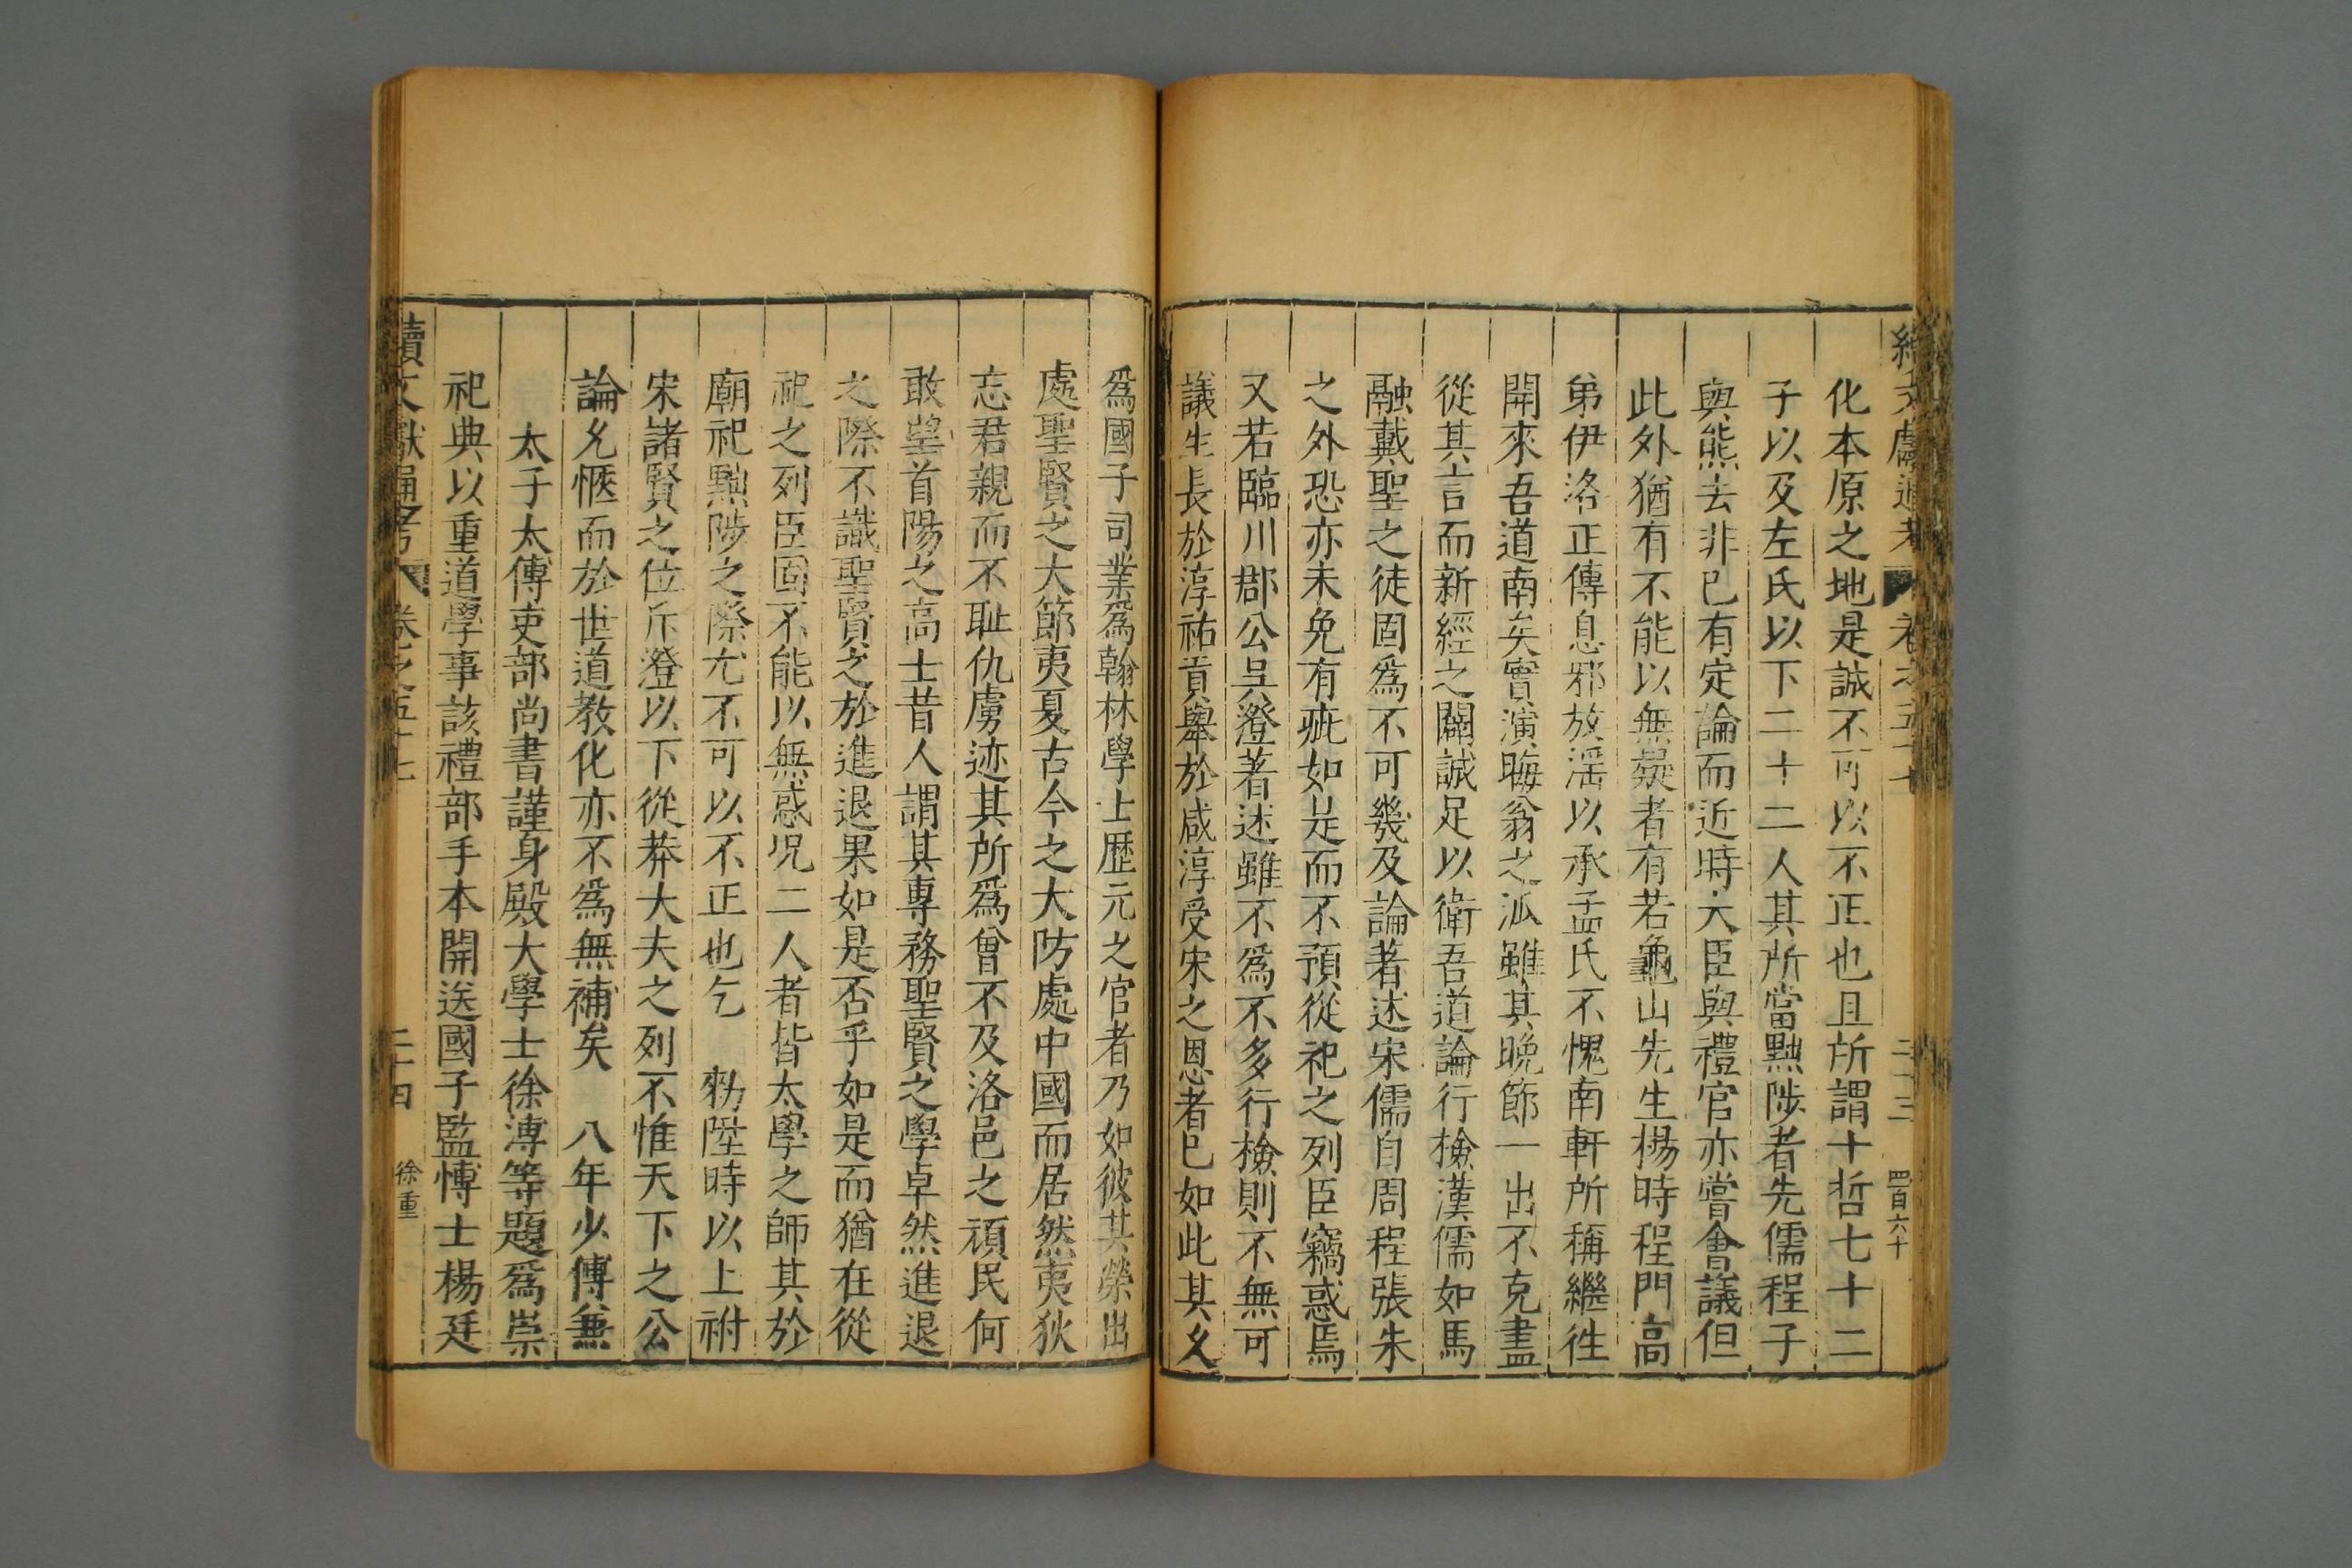 續文獻通考 卷之五十七 二十三 四百六十
化本原之地是誠不可以不正也且所謂十哲七十二
子以及左氏以下二十二人其所當黜陟者先儒程子
與熊去非已有定論而近時大臣與禮官亦嘗會議但
此外猶有不能以無疑者有若龜山先生楊時程門高
弟伊洛正傳息邪放滛以承孟氏不愧南軒所稱繼徃
開來吾道南矣實演晦翁之派雖其晚節一出不克盡
從其言而新經之闢誠足以衛吾道論行檢漢儒如馬
融戴聖之徒固爲不可幾及論著述宋儒自周程張朱
之外恐亦未免有疵如是而不預從祀之列臣竊惑焉
又若臨川郡公吳澄著述雖不爲不多行檢則不無可
議生長於淳祐貢舉於咸淳受宋之恩者已如此其久
爲國子司業爲翰林學士歷元之官者乃如彼其榮出
處聖賢之大節夷夏古今之大防處中國而居然夷狄
忘君親而不耻仇虜迹其所爲曾不及洛邑之頑民何
敢望首陽之高士昔人謂其專務聖賢之學卓然進退
之際不識聖賢之於進退果如是否乎如是而猶在從
祀之列臣固不能以無惑况二人者皆太學之師其於
廟祀黜陟之際尤不可以不正也乞 勑陞時以上祔
宋諸賢之位斥澄以下從莽大夫之列不惟天下之公
論允愜而於世道教化亦不爲無補矣 八年少傅兼
太子太傅吏部尚書謹身殿大學士徐溥等題爲崇
祀典以重道學事該禮部手本開送國子監博士楊廷
續文獻通考 卷之五十七 二十四 徐重